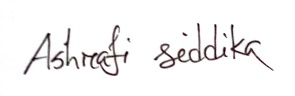 Ashrafi siddika